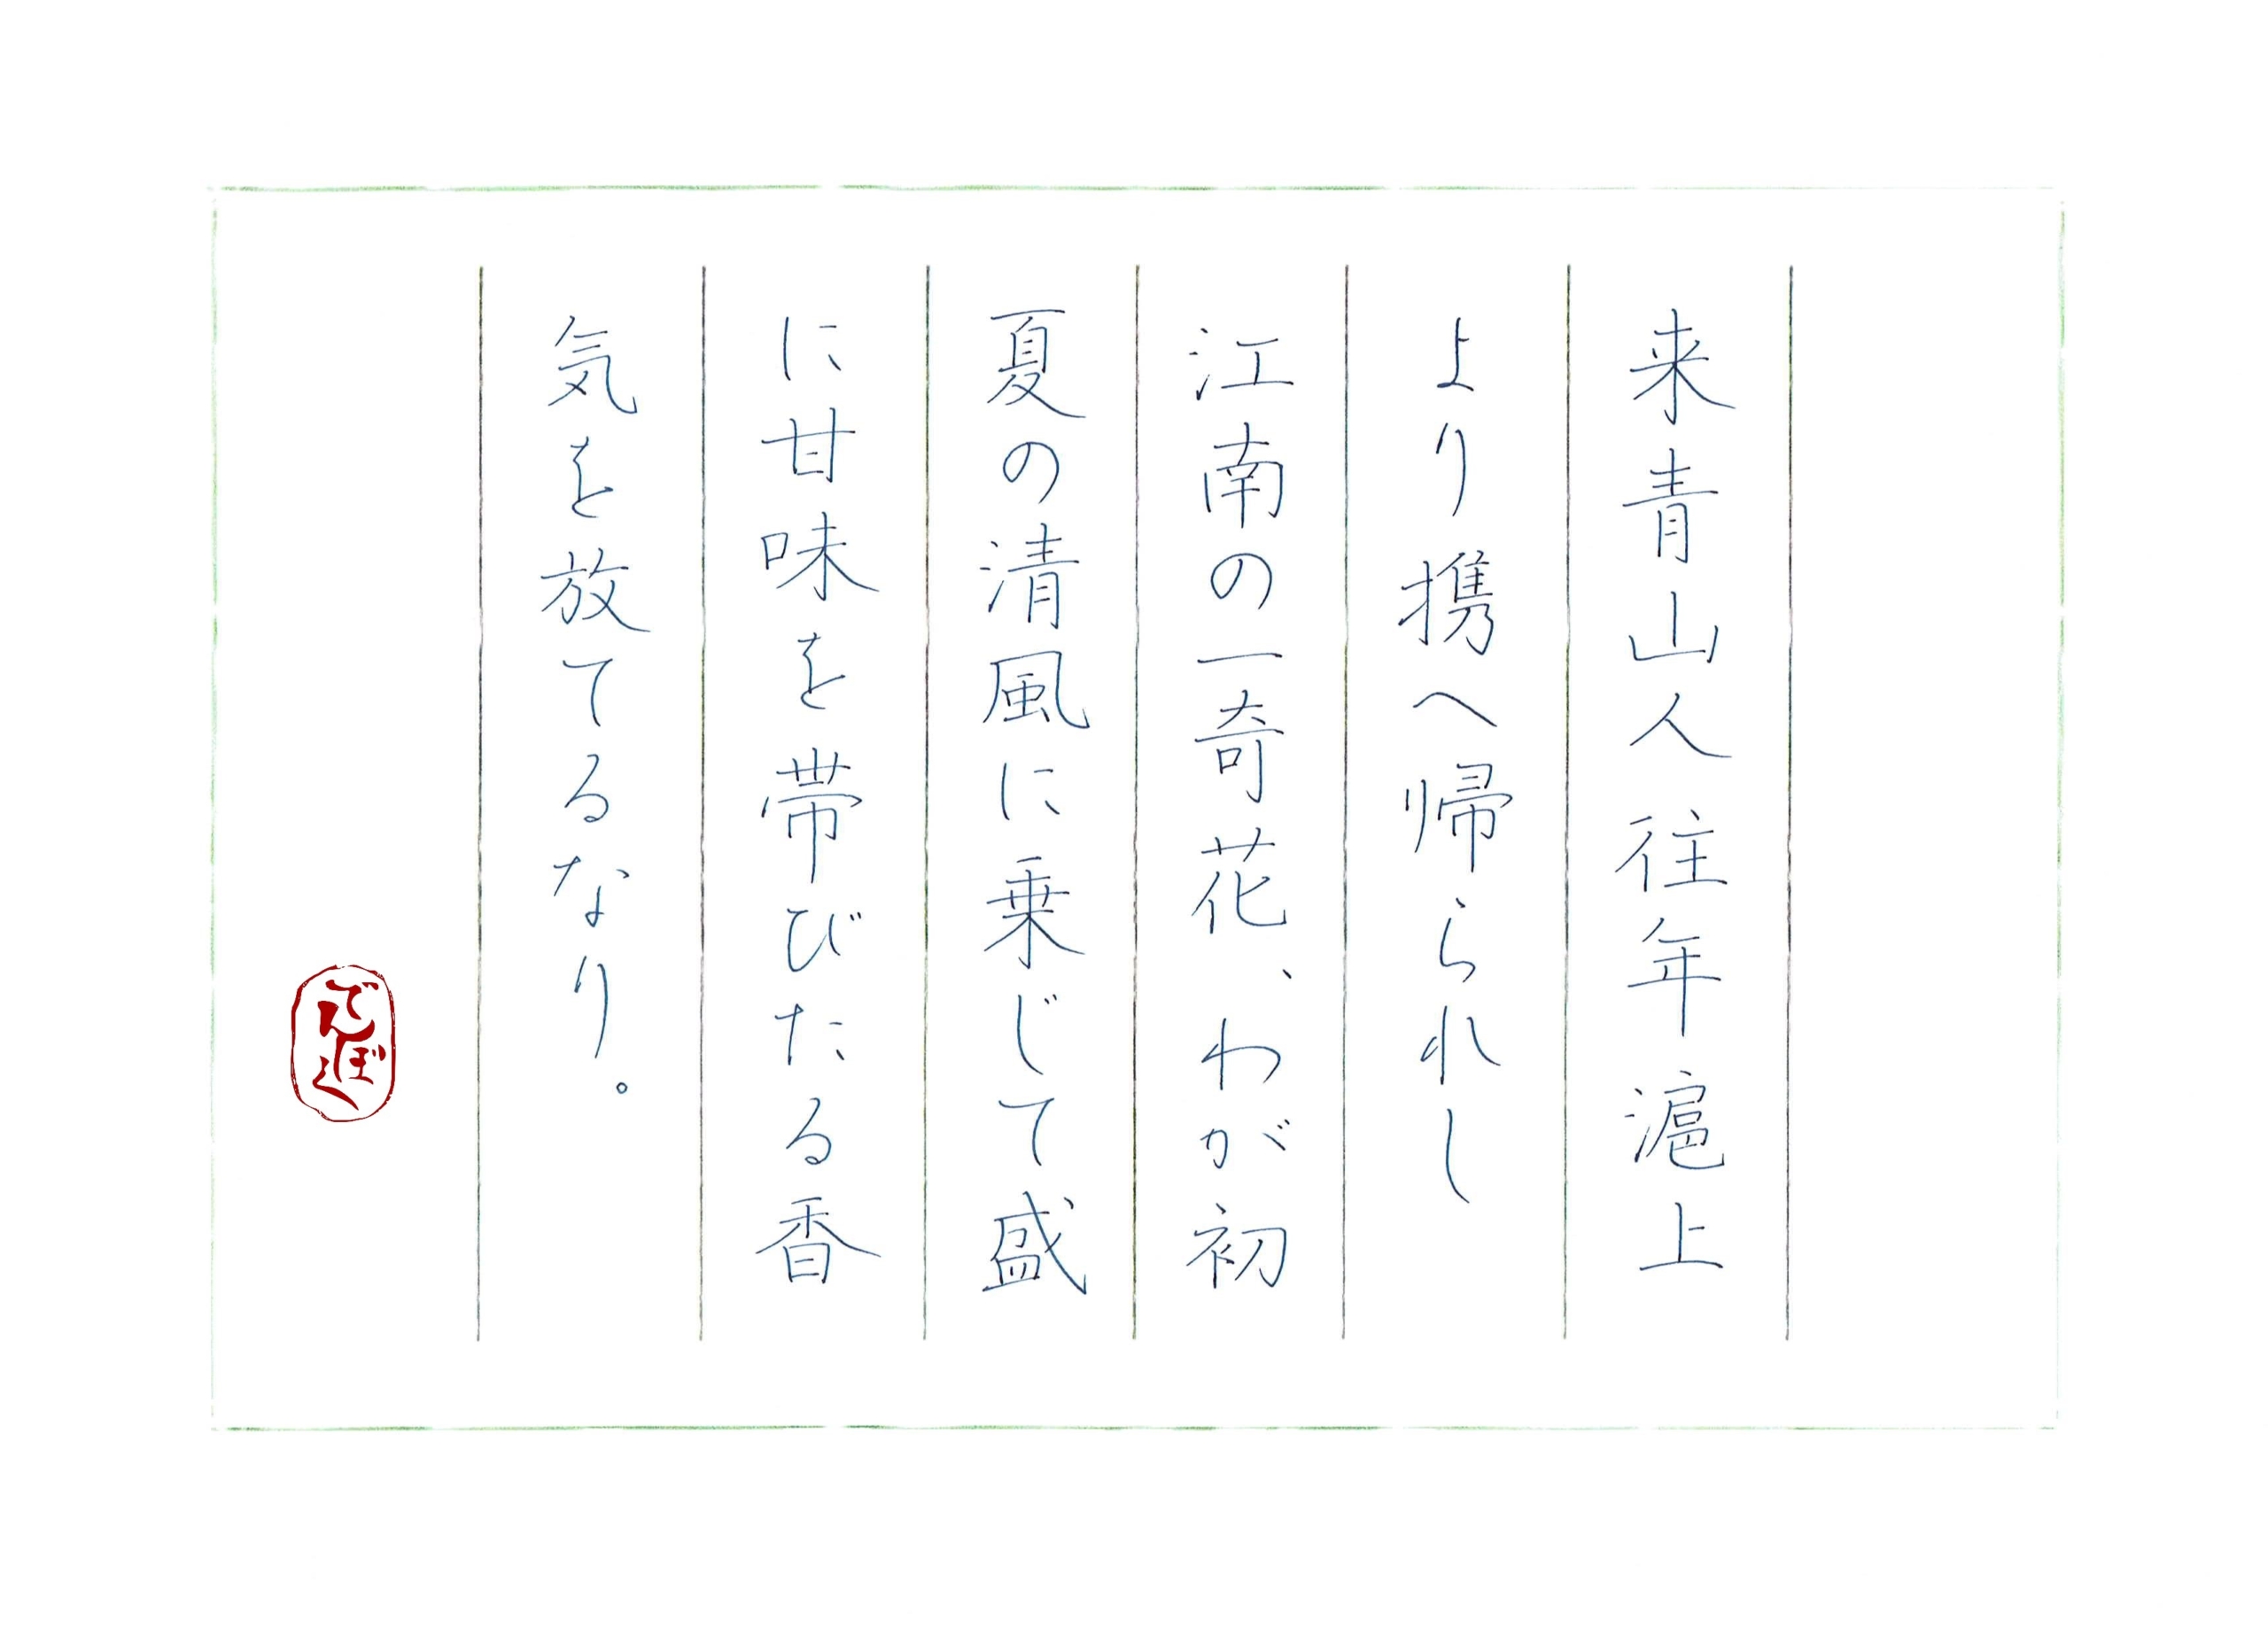 来青山人往年滬上
より携へ帰られし
江南の一奇花、わが初
夏の清風に乗じて盛
に甘味を帯びたる香
気を放てるなり。
でんぼく